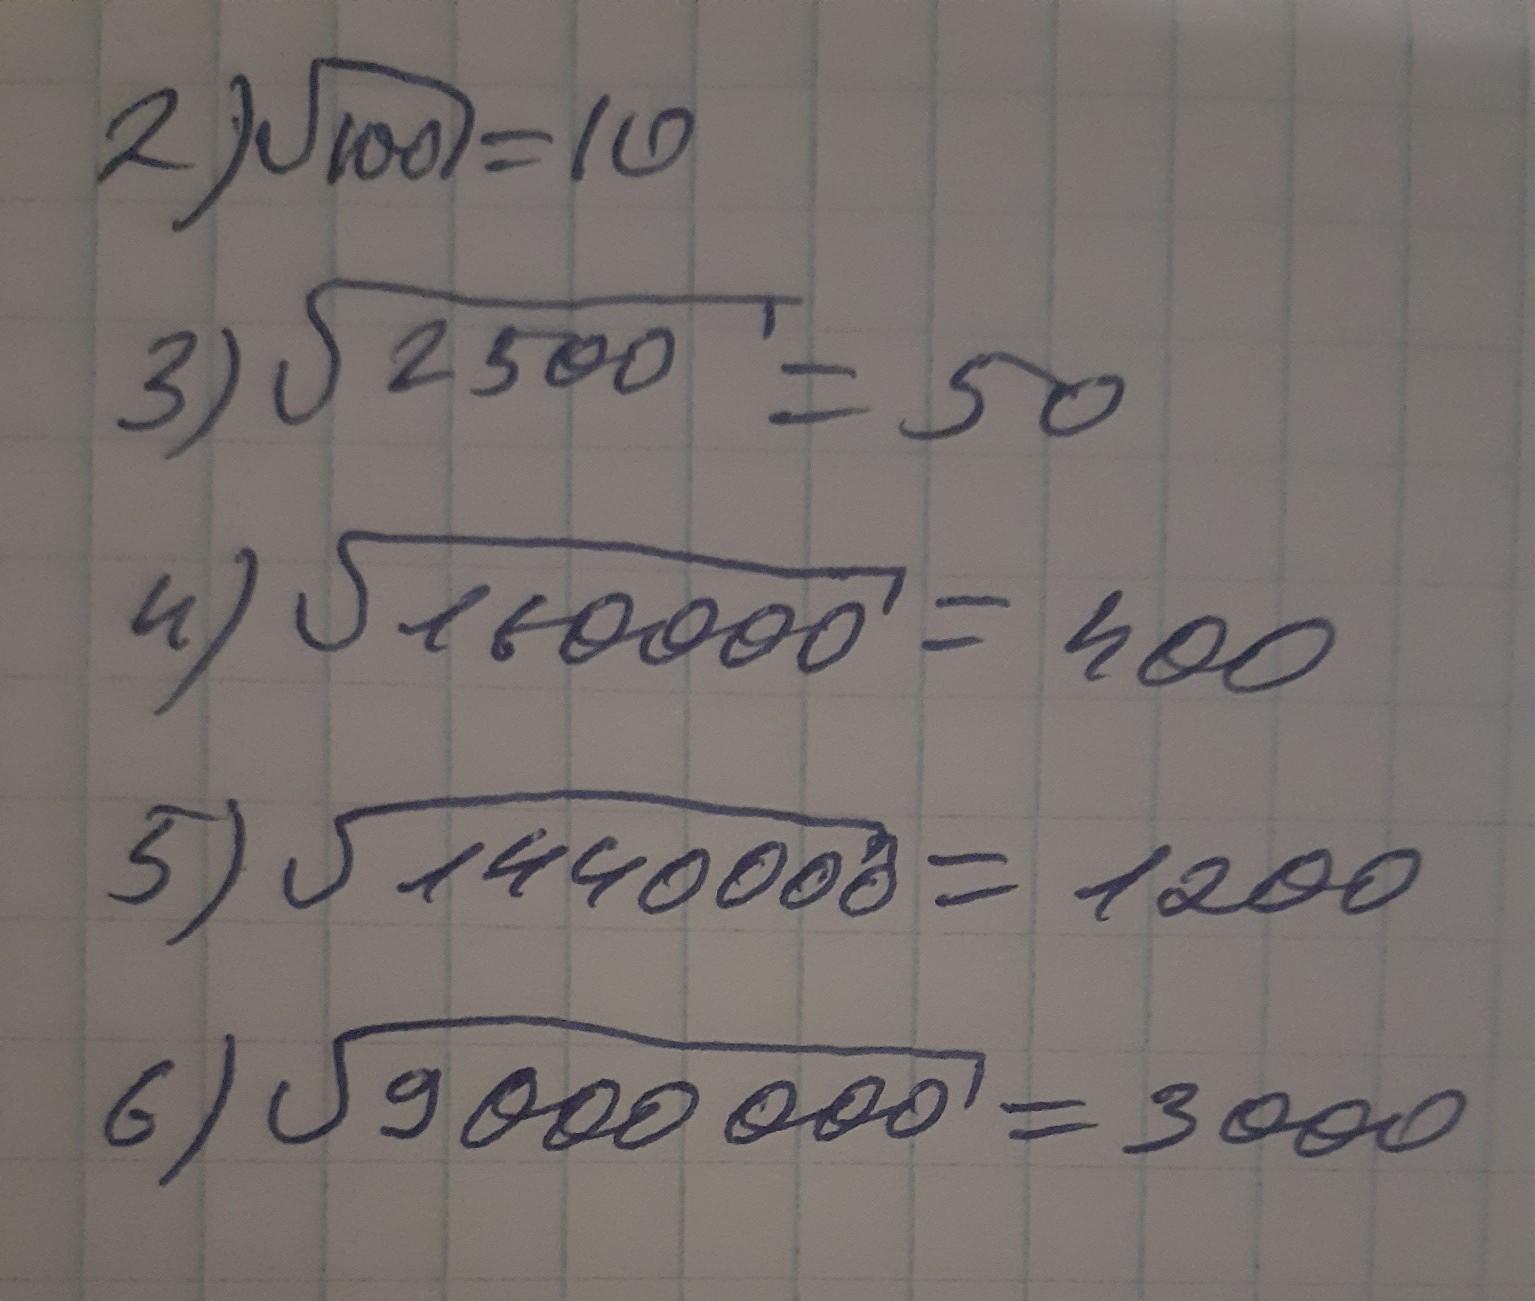 2) √100 = 10
3) √2500 = 50
4) √160000 = 400
5) √1440000 = 1200
6) √9000 000 = 3000